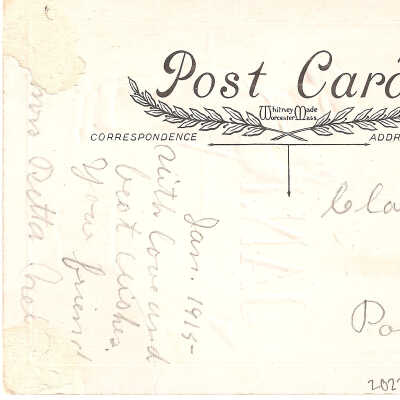 Post Card
Whitney Made
Worcester Mass.
CORRESPONDENCE
ADDR
Jan. 1915-
With love and
best wishes.
Your friend
Retta
Cla
Po
202